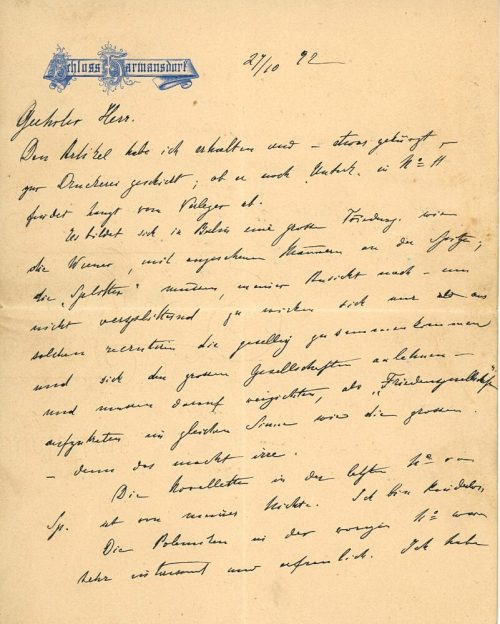 Schloss Harmansdorf
27/10 92
Geehrter Herr.
Den Artikel habe ich erhalten und – etwas gekürzt –
zur Druckerei geschickt; ob er noch in No 11
findet hängt vom Verleger ab.
Es bildet sich in Berlin eine grosse Friedensg. wie
die Wiener, mit angesehenen Männern an der Spitze;
die „Splitter" müssen, meiner Ansicht nach – um
nicht zersplitternd zu wirken sich nur aus
solchen recrutiren die gesellig zusammenkommen
und sich den grossen Gesellschaften anlehnen –
und müssen darauf verzichten, als „Friedensgesellschaft"
aufzutreten im gleichen Sinne wie die grossen.
– denn das macht irre.
Die Novellette in der letzten No von
Sp. ist von meiner Nichte. Ich bin kinderlos
Die Polemiken in der vorigen No waren
sehr interessant und erfreulich. Ich habe